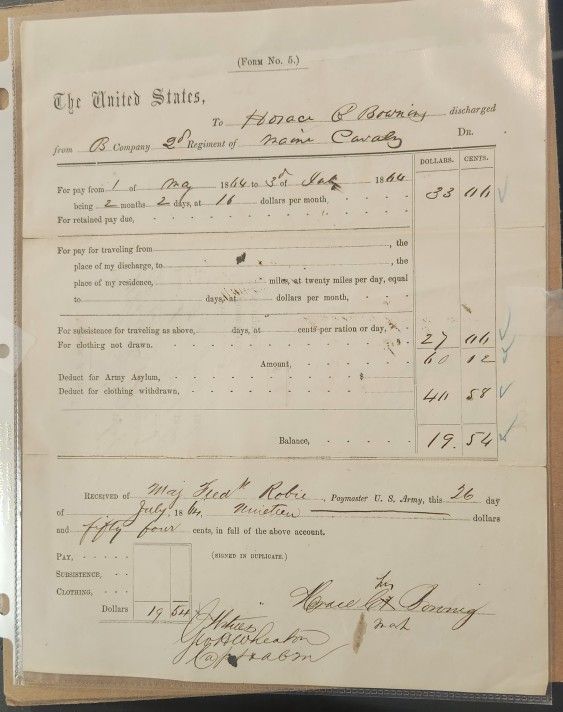 (Form No. 5.)
The United States,
To Horace Bowning discharged
from B Company 2d Regiment of Maine Cavalry Dr.
DOLLARS. CENTS.
For pay from 1 of May 1864 to 3d of July 1864
being 2 months 2 days, at 16 dollars per month, 33
For retained pay due,
For pay for traveling from , the
place of my discharge, to , the
place of my residence, miles, at twenty miles per day, equal
to days, at dollars per month,
For subsistence for traveling as above, days, at cents per ration or day,
For clothing not drawn. 27
Amount, 60 12
Deduct for Army Asylum, $
Deduct for clothing withdrawn, 58
Balance, 19. 54
Received of Maj Fredk Robie, Paymaster U. S. Army, this 26 day
of July 18 nineteen dollars
and fifty four cents, in full of the above account.
Pay, (SIGNED IN DUPLICATE.)
Subsistence,
Clothing,
his
Dollars 19 54